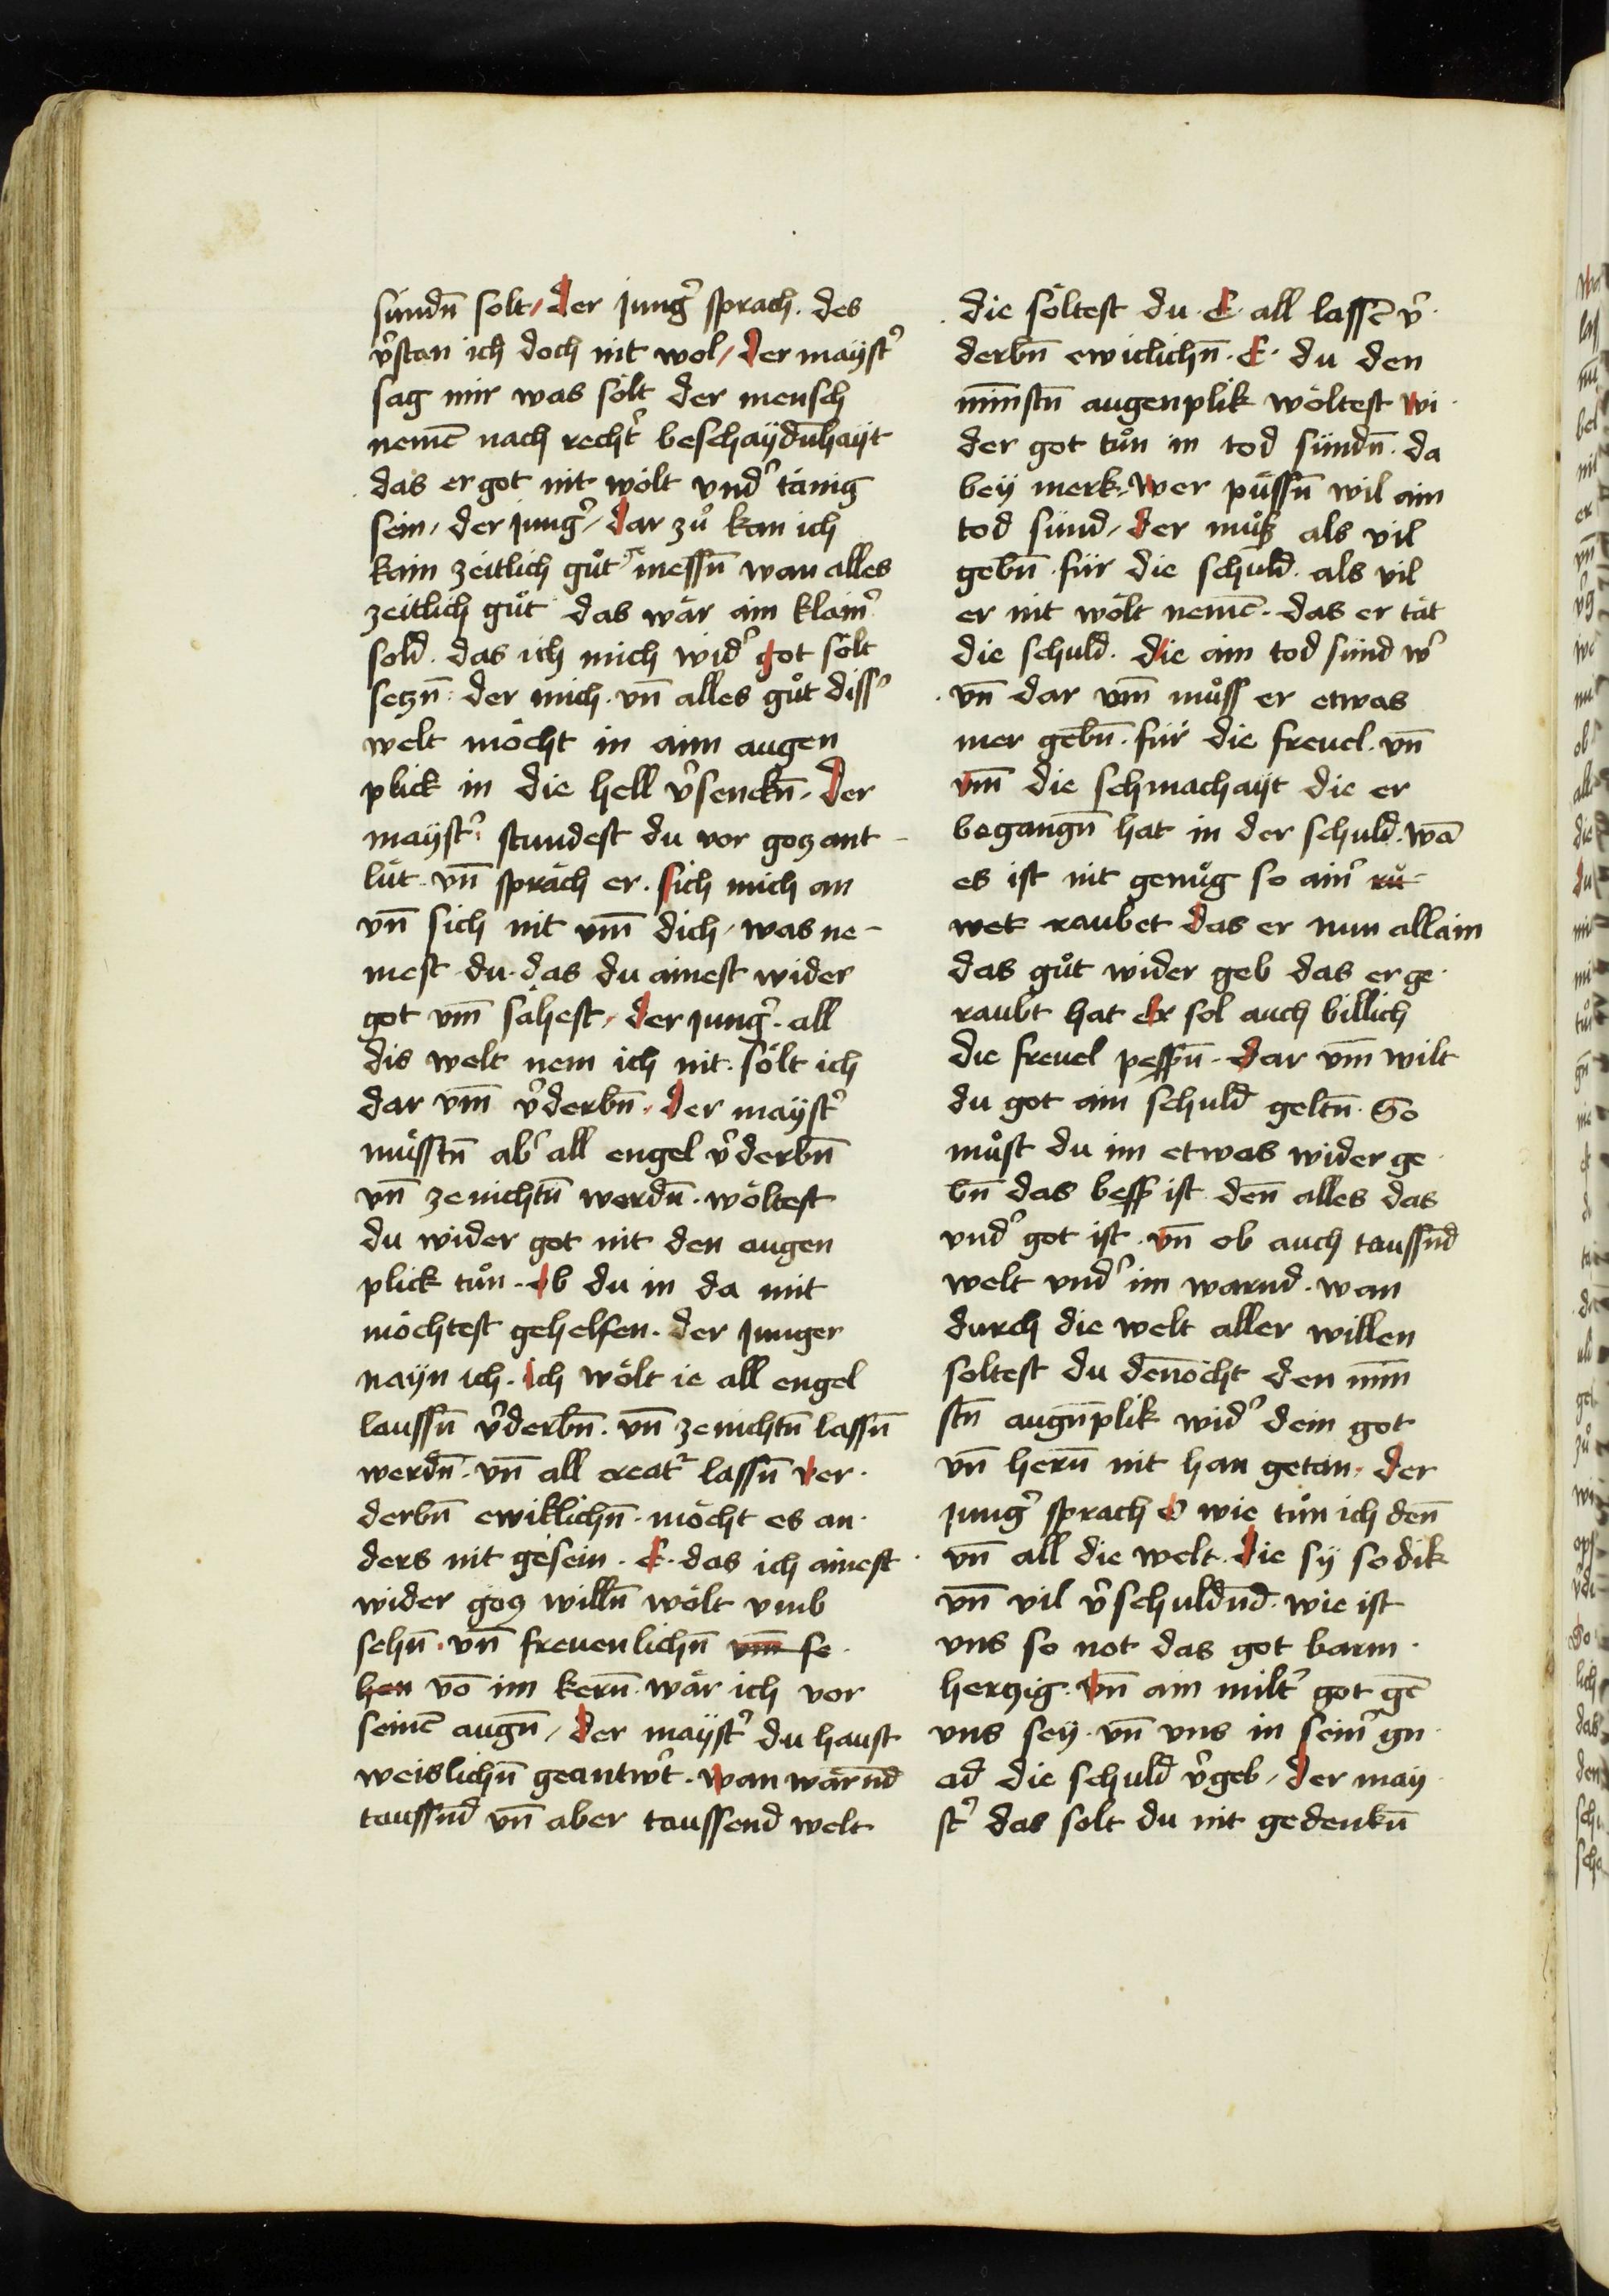 sündn̄ solt / der jungẽ sprach · des
v̾stan ich doch nit wol / der mayst̾
sag mir was sölt der mensch
nemē nach recht̾ beschaydn̄hayt
das er got nit wölt vnd̾ tänig
sein / der jung̾ / dar zů kan ich
kain zeitlich gůt messn̄ wan alles
zeitlich gůt das wär ain klain̾
sold · das ich mich wid̾ got sölt
seczn̄ : der mich · vn̄ alles gůt diss̾
welt möcht in aim augen
plick in die hell v̾senckn̄ · der
mayst̾ : stundest du vor gocz ant-
lüt · vn̄ spräch er · sich mich an
vn̄ sich nit vm̄ dich / was ne-
mest du · das du ainest wider
got vm̄ sähest / der jung̾ · all
dis welt nem ich nit · sölt ich
dar vm̄ v̾derbn̄ · der mayst̾
müsstn̄ ab̾ all engel v̾derbn̄
vn̄ ze nichtn̄ werdn̄ · wöltest
du wider got nit den augen
plick tůn · ob du in da mit
möchtest gehelfen · der Junger
nayn ich · ich wölt ie all engel
laussn̄ v̾derbn̄ · vn̄ ze nichtn̄ lassn̄
werdn̄ · vn̄ all creat̾ lassn̄ ver·
derbn̄ ewiklichn̄ · möcht es an·
ders nit gesein · E · das ich ainest
wider gocz willn̄ wölt vmb
sehn̄ · vn̄ freuenlichn̄ vm̄ se·
hen vō im kern̄ · wär ich vor
seinē augn̄ / der mayst̾ du haust
weislichn̄ geantw̾t · wan wärnd̄
taussn̄d vn̄ aber taussend welt
die söltest du · E · all lassē v̾·
derbn̄ ewiclichn̄ · E · du den
minstn̄ augenplik wöltest wi·
der got tůn in tod sündn̄ · da
bey merk · wer püssn̄ wil ain
tod sünd / der můsz als vil
gebn̄ · für die schuld · als vil
er nit wölt nemē · das er tät
die schuld · die ain tod sünd w̾
vn̄ dar vm̄ můss er etwas
mer gebn̄ · für die freuel · vn̄
vm̄ die schmachayt die er
begangn̄ hat in der schuld · wā
es ist nit genůg so ain̾ rů-
wet raubet das er nun allain
das gůt wider geb das er ge·
raubt hat er sol auch billich
die freuel pessn̄ · dar vm̄ wilt
du got ain schuld geltn̄ · So
můst du im etwas wider ge·
bn̄ das bess ist den̄ alles das
vnd̾ got ist · vn̄ ob auch taussn̄d
welt vnd̾ im warnd · wan
durch die welt aller willen
soltest du den̄ocht den min
stn̄ augn̄plik wid̾ dein got
vn̄ hern̄ nit han getan · der
jung̾ sprach O wie tůn ich den̄
vn̄ all die welt · die sy so dik
vn̄ vil v̾schuldn̄d · wie ist
vns so not das got barm·
herczig · vn̄ ain milt̾ got gē
vns sey · vn̄ vns in sein̾ gn·
ad die schuld v̾geb / der may·
st̾ das solt du nit gedenkn̄